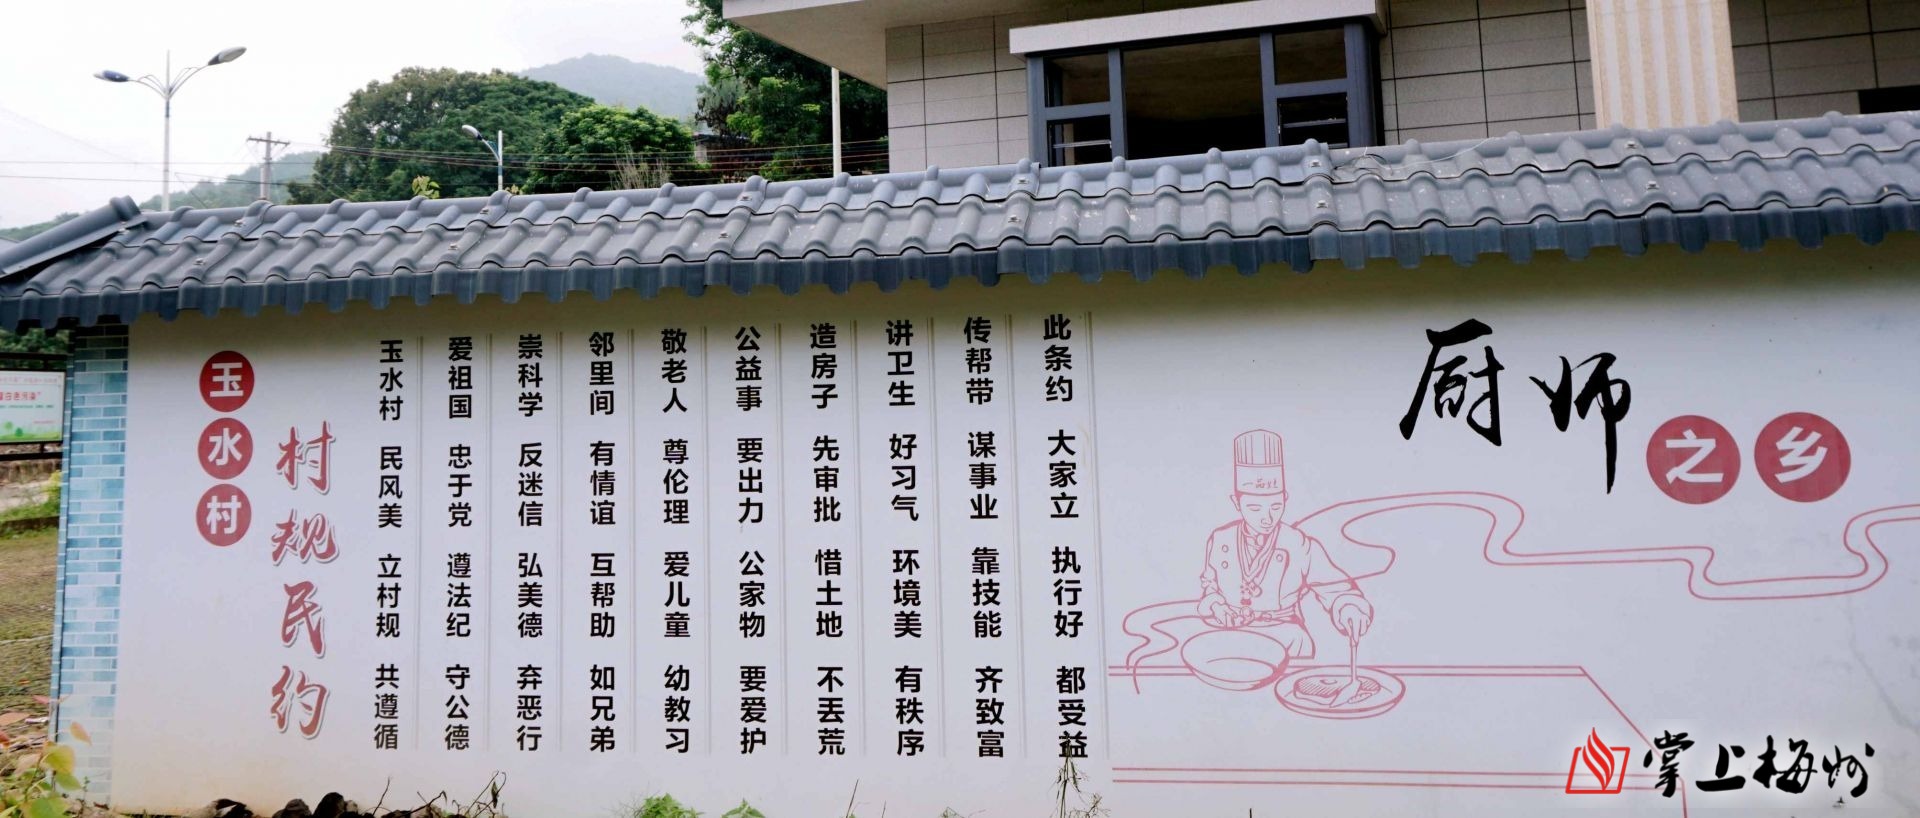 玉水村
村规民约
玉水村 民风美 立村规 共遵循
爱祖国 忠于党 遵法纪 守公德
崇科学 反迷信 弘美德 弃恶行
邻里间 有情谊 互帮助 如兄弟
敬老人 尊伦理 爱儿童 幼教习
公益事 要出力 公家物 要爱护
造房子 先审批 惜土地 不丢荒
讲卫生 好习气 环境美 有秩序
传帮带 谋事业 靠技能 齐致富
此条约 大家立 执行好 都受益
厨师之乡
掌上梅州